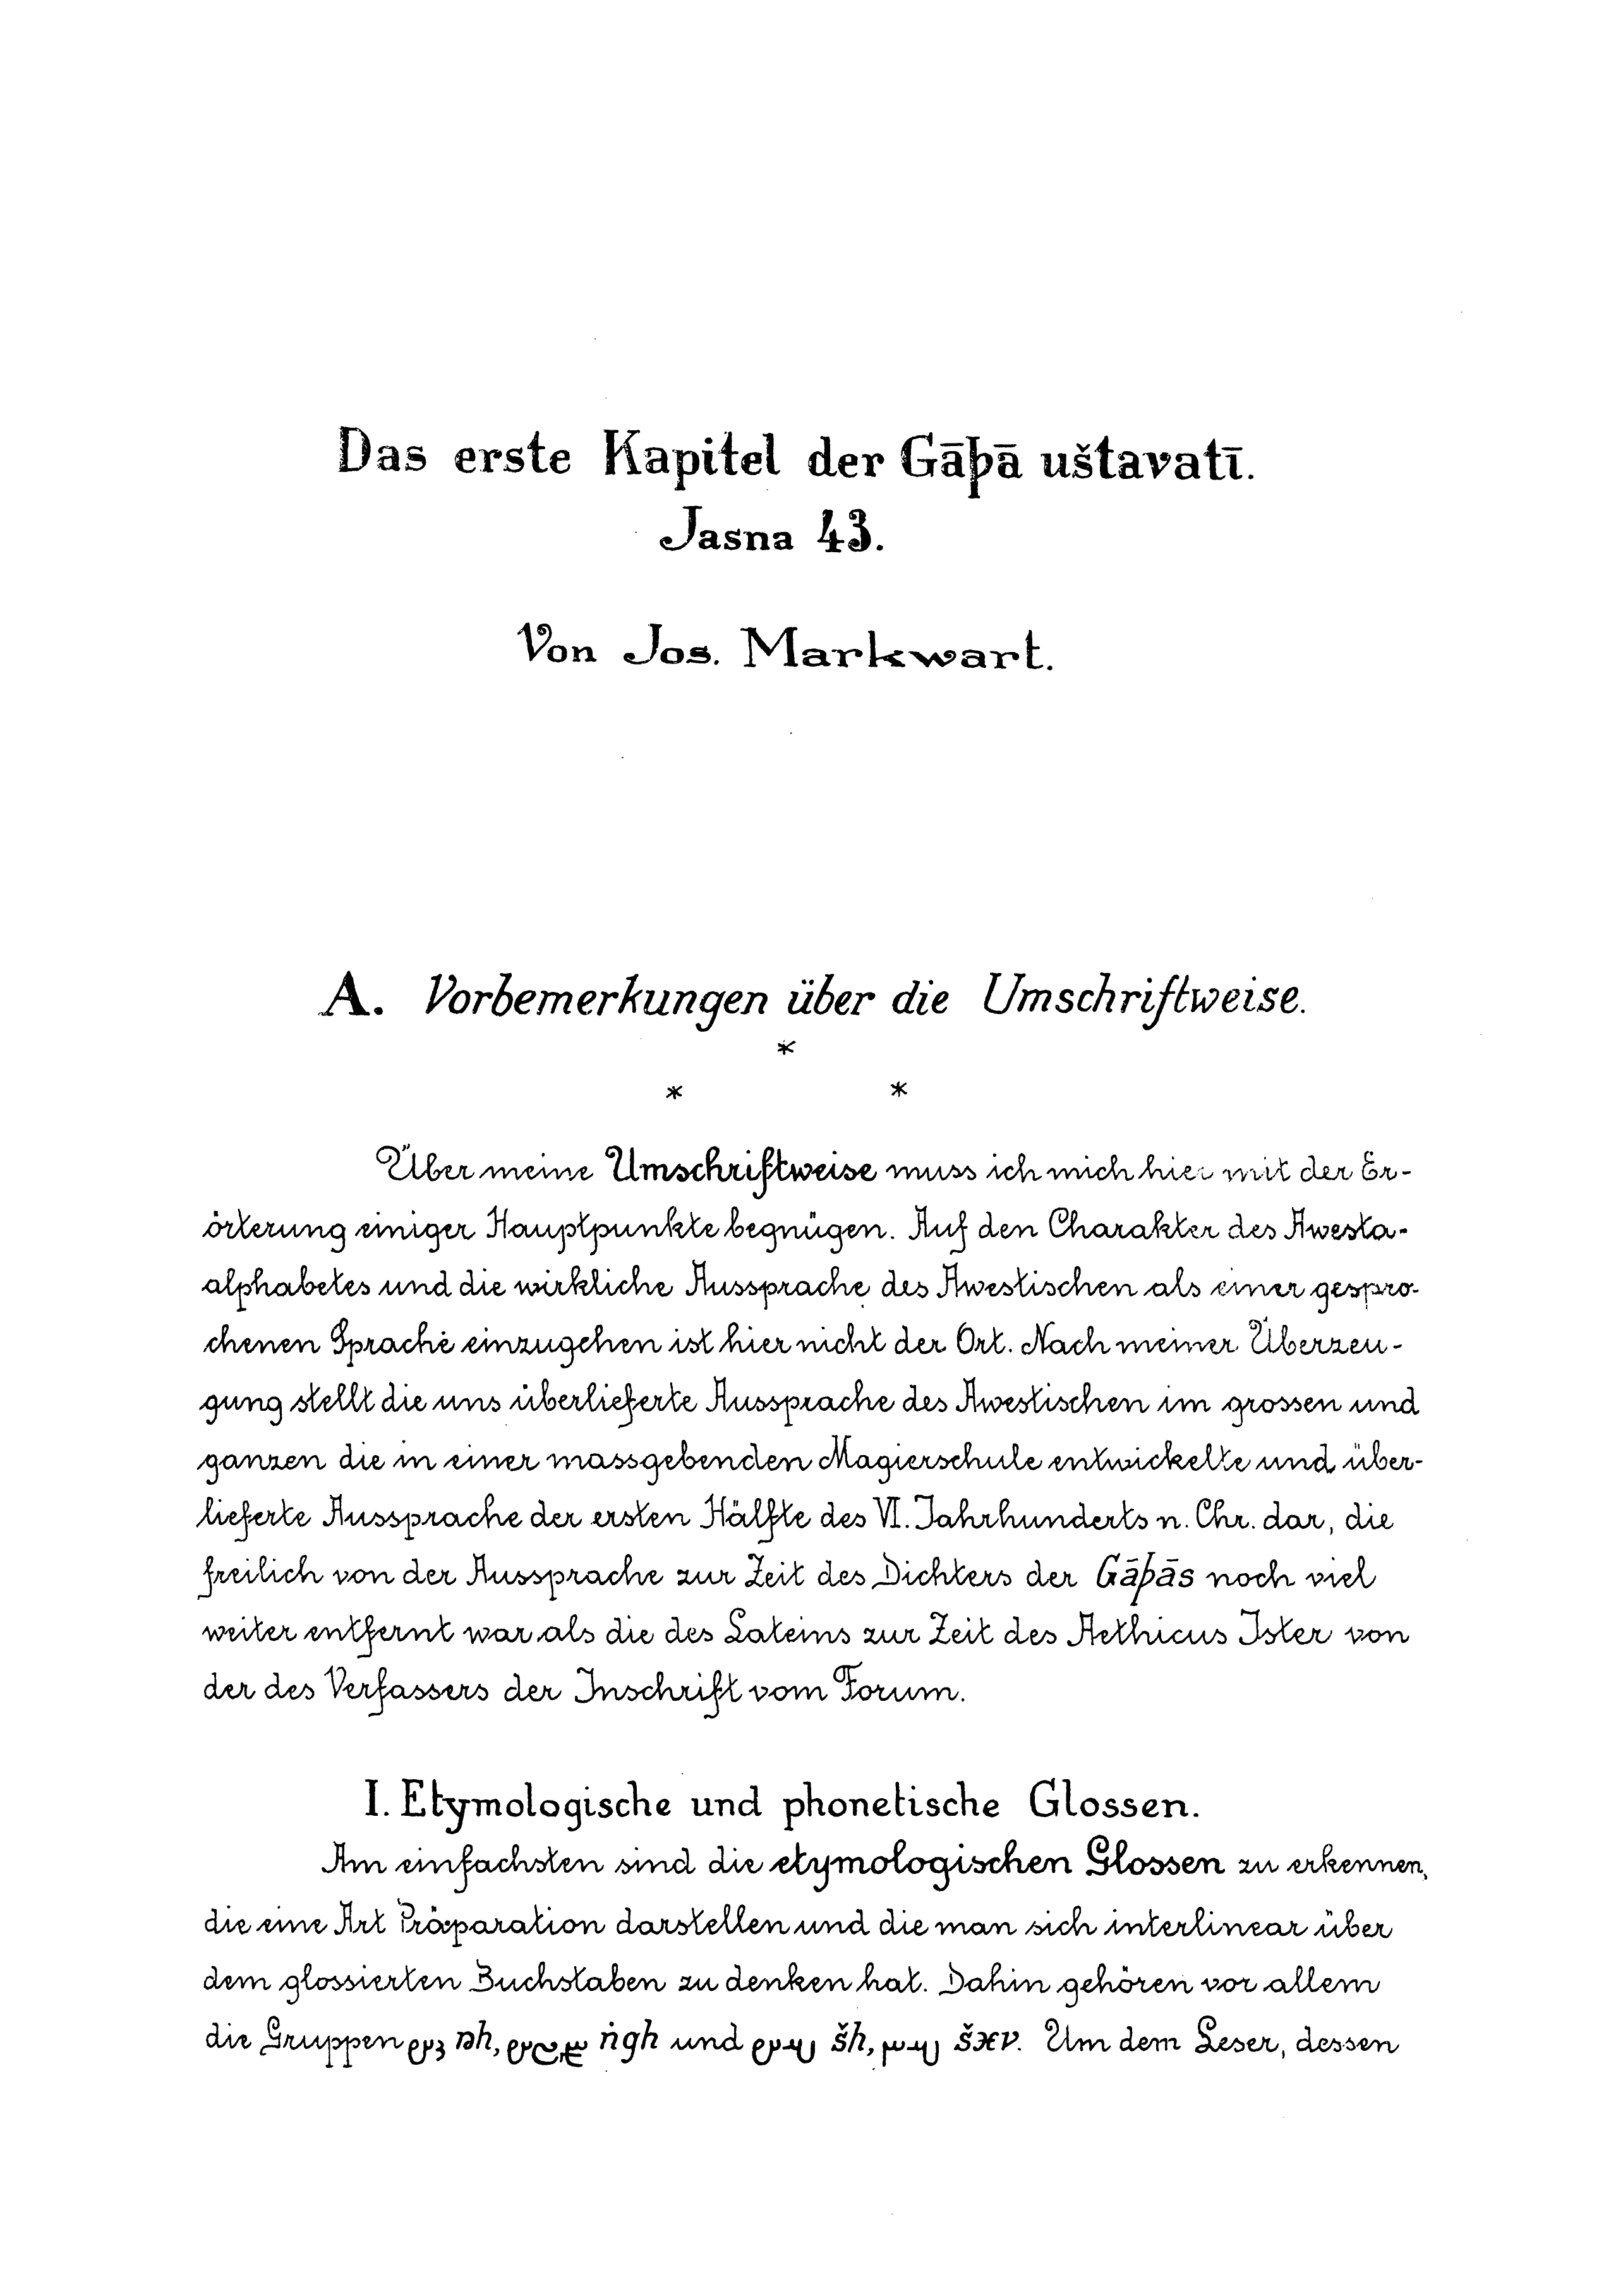 Das erste Kapitel der Gāþā uštavatī.
Jasna 43.
Von Jos. Markwart.
A. Vorbemerkungen über die Umschriftweise.
*
* *
Über meine Umschriftweise muss ich mich hier mit der Er-
örterung einiger Hauptpunkte begnügen. Auf den Charakter des Awesta-
alphabetes und die wirkliche Aussprache des Awestischen als einer gespro-
chenen Sprache einzugehen ist hier nicht der Ort. Nach meiner Überzeu-
gung stellt die uns überlieferte Aussprache des Awestischen im grossen und
ganzen die in einer massgebenden Magierschule entwickelte und über-
lieferte Aussprache der ersten Hälfte des VI. Jahrhunderts n. Chr. dar, die
freilich von der Aussprache zur Zeit des Dichters der Gāþās noch viel
weiter entfernt war als die des Lateins zur Zeit des Aethicus Ister von
der des Verfassers der Inschrift vom Forum.
I. Etymologische und phonetische Glossen.
Am einfachsten sind die etymologischen Glossen zu erkennen,
die eine Art Präparation darstellen und die man sich interlinear über
dem glossierten Buchstaben zu denken hat. Dahin gehören vor allem
die Gruppen ṅgh und šh, Um dem Leser, dessen